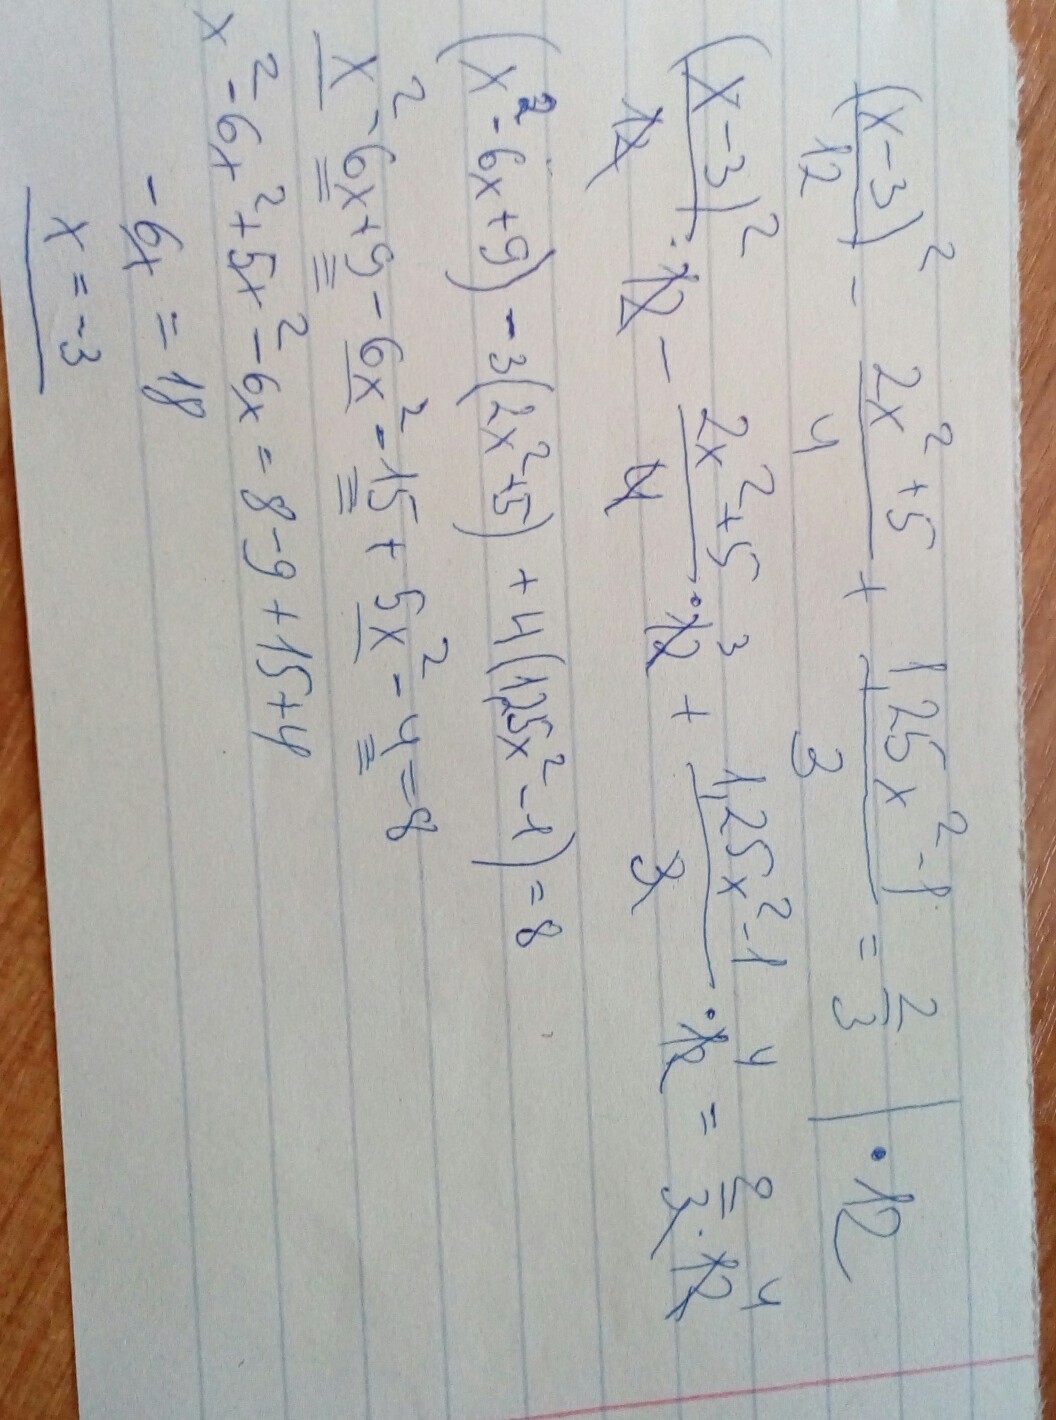 (x-3)²/12 - 2x²+5/4 + 1,25x²-1/3 = 2/3 | ·12
(x-3)²/12 ·12 - 2x²+5/4 ·12 3 + 1,25x²-1/3 ·12 4 = 2/3 ·12 4
(x²-6x+9) - 3(2x²+5) + 4(1,25x²-1) = 8
x²-6x+9-6x²-15+5x²-4=8
x²-6x²+5x²-6x=8-9+15+4
-6x = 18
x = -3